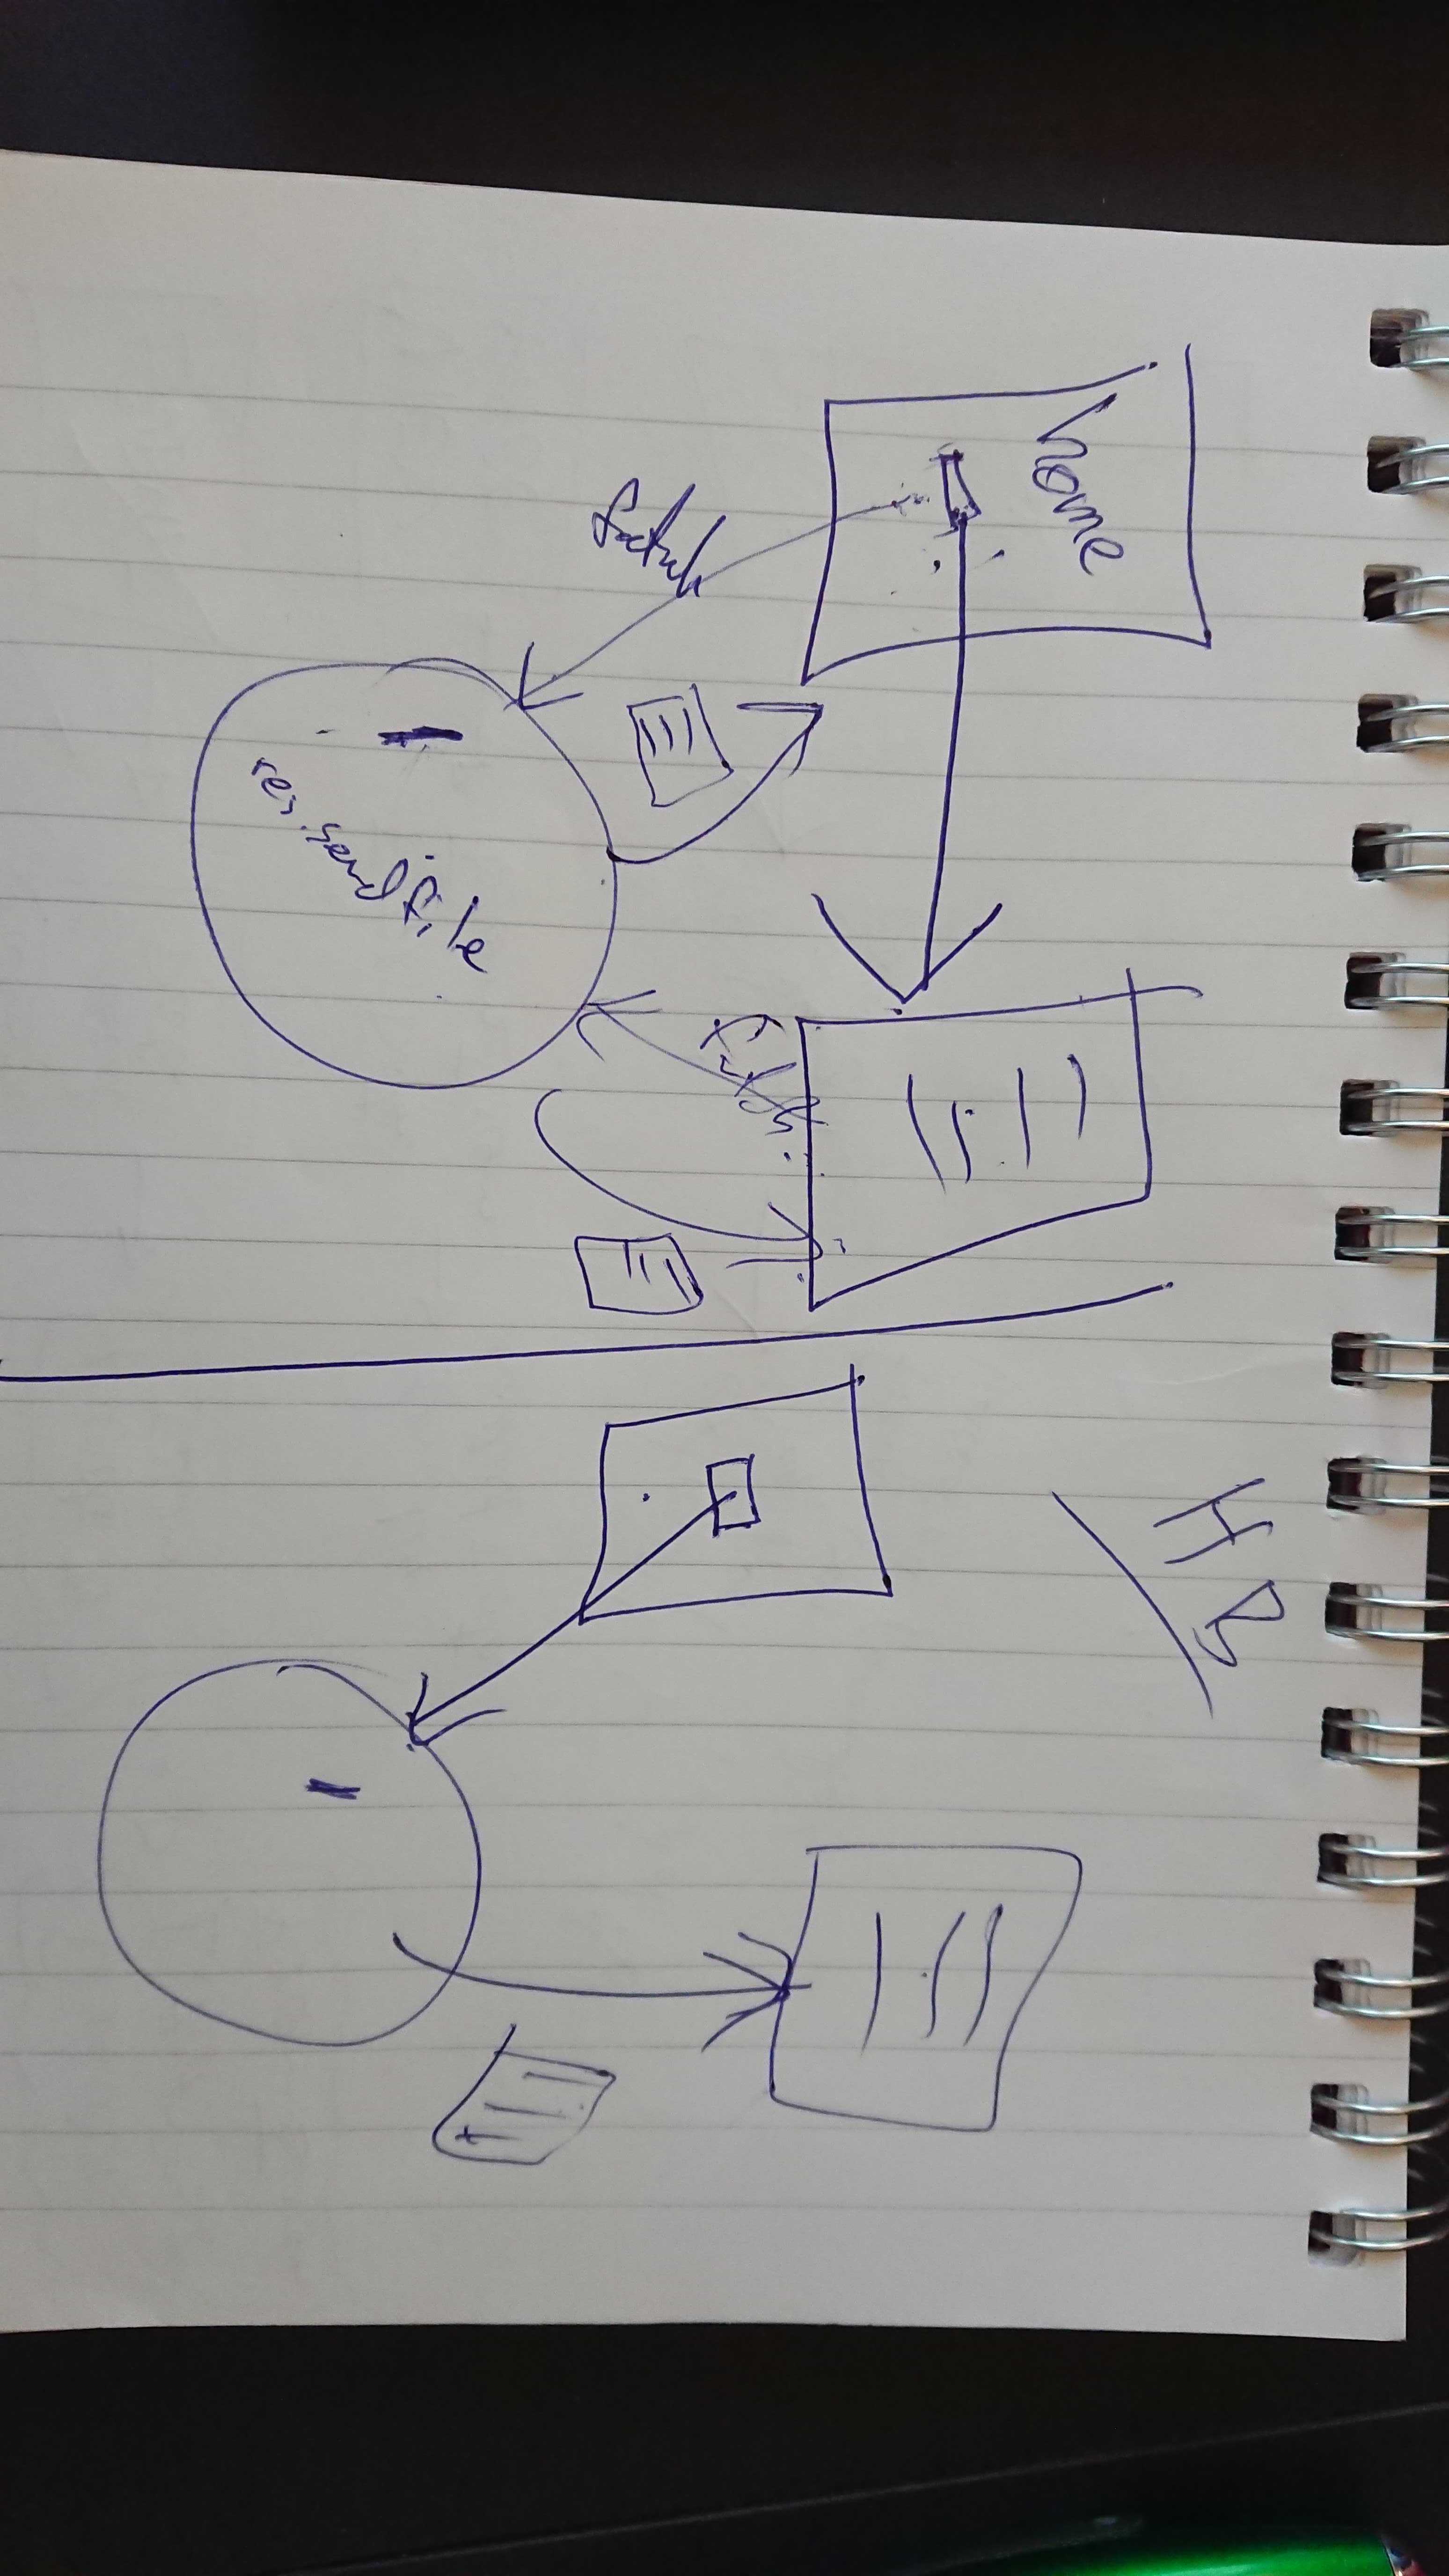 home
fetch
res.sendfile
fetch
HB